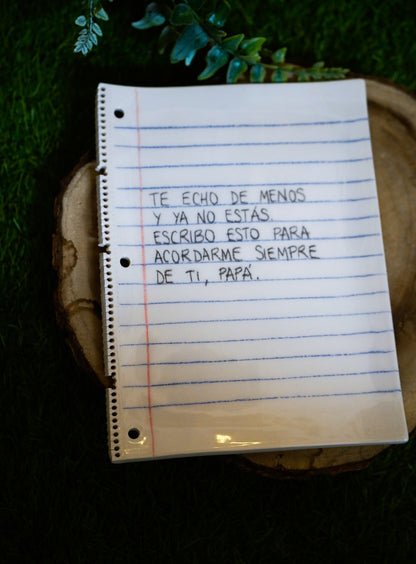 TE ECHO DE MENOS
Y YA NO ESTÁS.
ESCRIBO ESTO PARA
ACORDARME SIEMPRE
DE TI, PAPÁ.